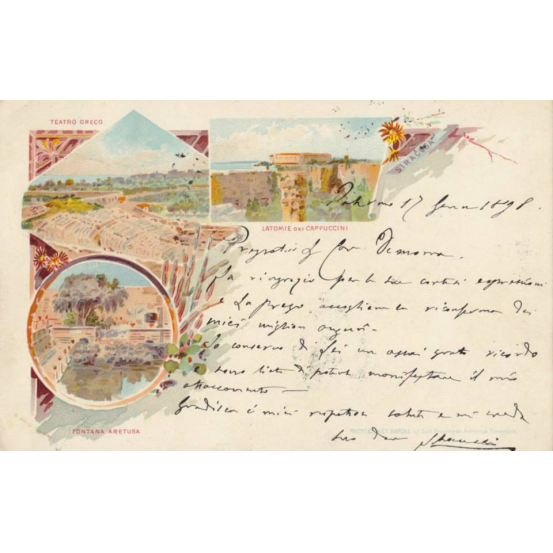 TEATRO GRECO
LATOMIE DEI CAPPUCCINI
SIRACUSA
FONTANA ARETUSA
17 1898
La ringrazio per le sue cortesi espressioni
e La Prego accogliere la riconferma dei
miei migliori auguri.
Io conservo di Lei un assai grato ricordo
e sono lieto di poter manifestare il mio
attaccamento
Gradisca i miei rispettosi saluti e mi creda
Suo